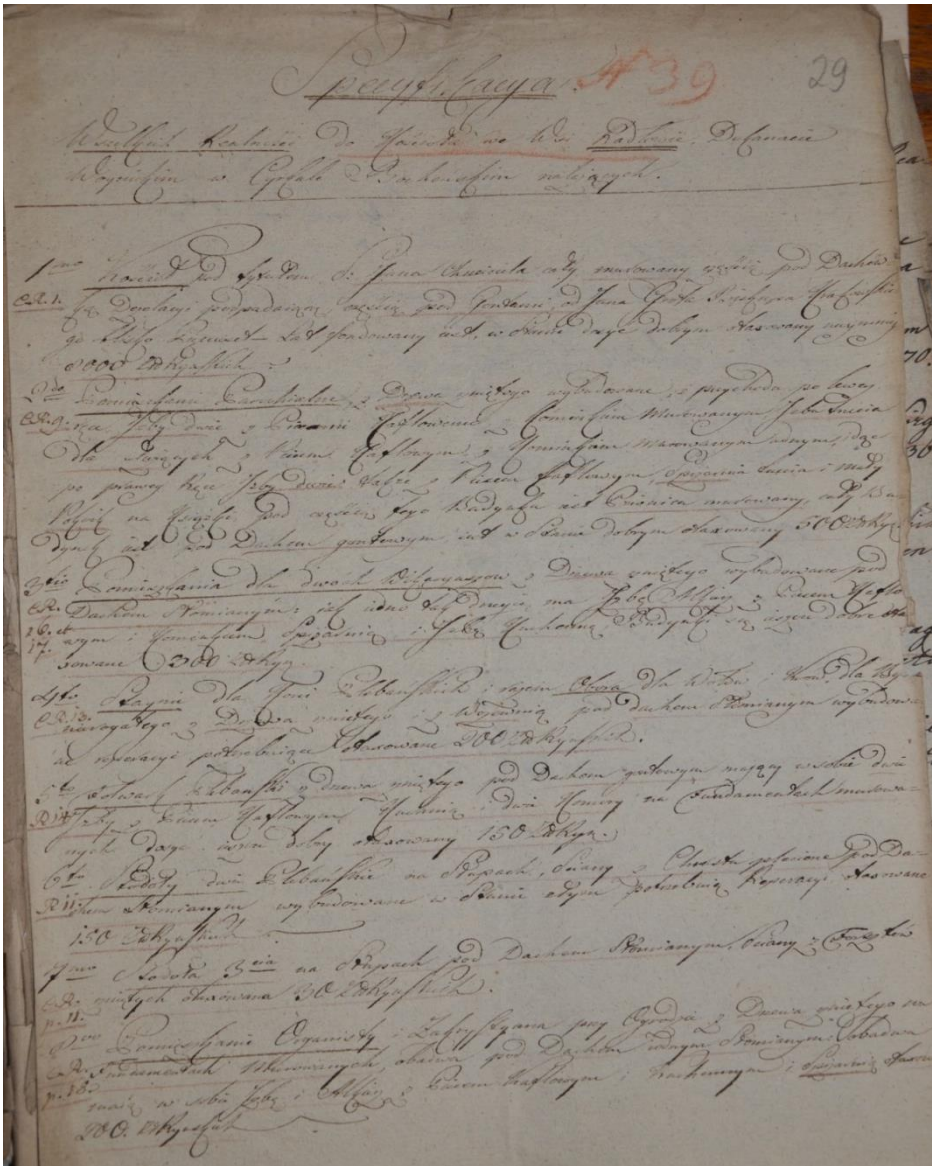 Specyfikacya. N 39 29
Wszelkich Realności do Kościoła we Wsi Radłowie Dekanacie
Woynickim w Cyrkule Bocheńskim należących.
1mo Kościół pod tytułem S: Jana Chrzciciela cały murowany częścią pod Dachów
C.R. 1. ką Dezolacyi podpadaiącą częścią pod Gontami, od Jana Grota Biskupa Krakowski
go blisko lat fundowany iest, w Stanie dosyć dobrym otaxowany naymniey
8000 ZłRyńskich
2do Pomieszkanie Parochialne z Drzewa rzniętego wybudowane, z przychodu po lewey
ręce Izby dwie z Piecami Kaflowemi z Kominkiem Murowanym, Izba trzecia
dla z Piecem Kaflowym, z Kominkiem murowanym iednym, idąc
po prawey ręce Izby dwie także z Piecem Kaflowym, Spiżarnia trzecia i mały
Pokoik na Książki. Pod częścią tego Budynku iest Piwnica murowana, cały Bu
dynek iest pod Dachem gontowym, iest w Stanie dobrym otaxowany 500 ZłRyń
3tio Pomieszkania dla dwóch Wikaryuszow z Drzewa rzniętego wybudowane pod
C.R. Dachem Słomianym: iak iedno tak drugie ma Izbę, Alkierz z Piecem Kaflo
16. et wym i Kominkiem, Spiżarnią i Izbę Kuchenną Budynki są dosyć dobre ota
17. xowane 200 ZłRyń.
4to Staynie dla Koni Plebańskich i razem Obora dla Wołow i Krow, dla Bydła
C.R. 13. nierogatego z Drzewa rzniętego i z Wozownią pod dachem Słomianym wybudowa
ne reperacyi potrzebuiące otaxowane 200 ZłRyńskich.
5to Folwark Plebański z drzewa rzniętego pod Dachem gontowym maiący w sobie dwie
R 14 Izby z Piecem Kaflowym Kuchnią i dwie Komory na Fundamentach murowa-
nych dosyć dobry otaxowany 150 ZłRyń.
6to Stodoły dwie Plebańskie na Słupach, Sciany z Chrostu plecione Pod Da-
R 11. chem Słomianym wybudowane w Stanie złym potrzebuią Reperacyi otaxowane
150 ZłRyńskich
7mo Stodoła 3cia na Słupach pod Dachem Słomianym, Sciany z
C.R. rzniętych otaxowana 30 ZłRyńskich.
p. 11.
8vo Pomieszkanie Organisty i Zakrystyana przy Ogrodzie z Drzewa rzniętego na
C.R. Fundamentach Murowanych, obadwa pod Dachem iednym Słomianym: obadwa
p. 18. maią w sobie Izbę i Alkierz z Piecem Kaflowym i Kuchennym i Spiżarnię otaxow
200. ZłRyńskich